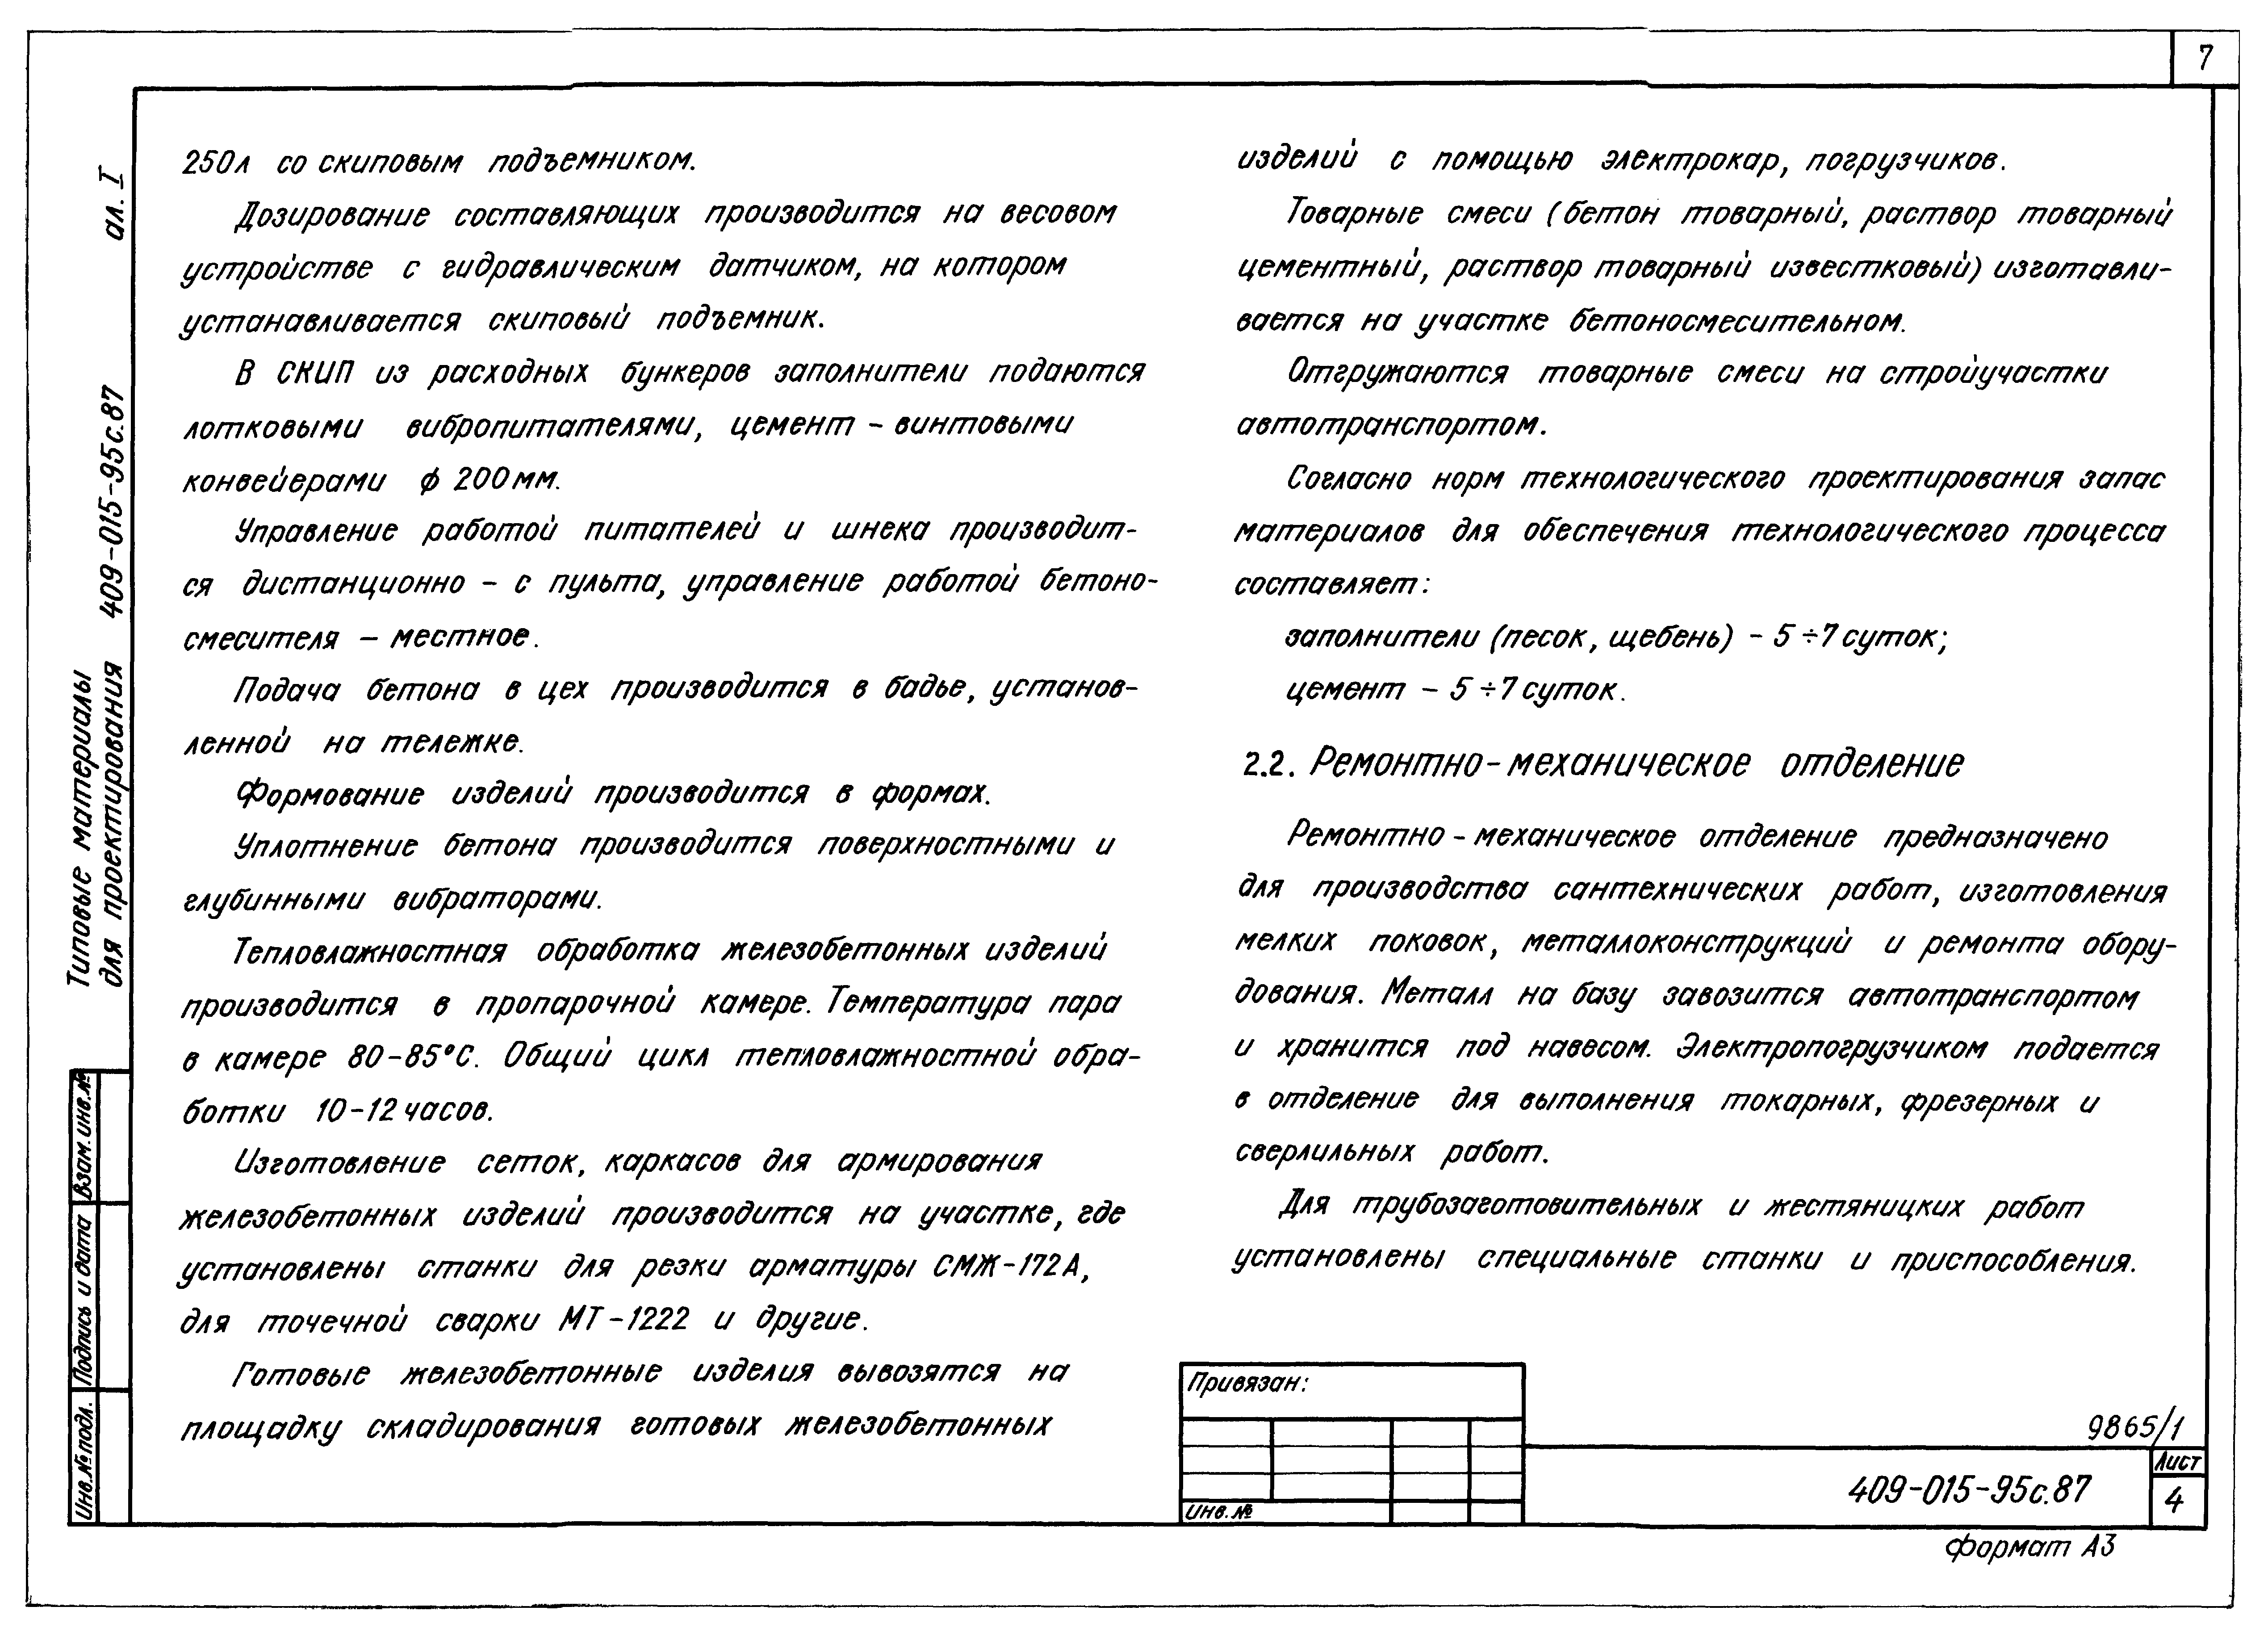 7
ал. I
Типовые материалы
для проектирования 409-015-95с.87
250л со скиповым подъемником.
Дозирование составляющих производится на весовом
устройстве с гидравлическим датчиком, на котором
устанавливается скиповый подъемник.
В СКИП из расходных бункеров заполнители подаются
лотковыми вибропитателями, цемент - винтовыми
конвейерами ϕ 200мм.
Управление работой питателей и шнека производит-
ся дистанционно - с пульта, управление работой бетоно-
смесителя - местное.
Подача бетона в цех производится в бадье, установ-
ленной на тележке.
Формование изделий производится в формах.
Уплотнение бетона производится поверхностными и
глубинными вибраторами.
Тепловлажностная обработка железобетонных изделий
производится в пропарочной камере. Температура пара
в камере 80-85°С. Общий цикл тепловлажностной обра-
ботки 10-12 часов.
Изготовление сеток, каркасов для армирования
железобетонных изделий производится на участке, где
установлены станки для резки арматуры СМЖ-172А,
для точечной сварки МТ-1222 и другие.
Готовые железобетонные изделия вывозятся на
площадку складирования готовых железобетонных
изделий с помощью электрокар, погрузчиков.
Товарные смеси (бетон товарный, раствор товарный
цементный, раствор товарный известковый) изготавли-
вается на участке бетоносмесительном.
Отгружаются товарные смеси на стройучастки
автотранспортом.
Согласно норм технологического проектирования запас
материалов для обеспечения технологического процесса
составляет:
заполнители (песок, щебень) - 5÷7 суток;
цемент - 5÷7 суток.
2.2. Ремонтно-механическое отделение
Ремонтно-механическое отделение предназначено
для производства сантехнических работ, изготовления
мелких поковок, металлоконструкций и ремонта обору-
дования. Металл на базу завозится автотранспортом
и хранится под навесом. Электропогрузчиком подается
в отделение для выполнения токарных, фрезерных и
сверлильных работ.
Для трубозаготовительных и жестяницких работ
установлены специальные станки и приспособления.
Взам. инв. №
Подпись и дата
Инв. № подл.
Привязан:
Инв. №
9865/1
409-015-95с.87
Лист
4
формат А3